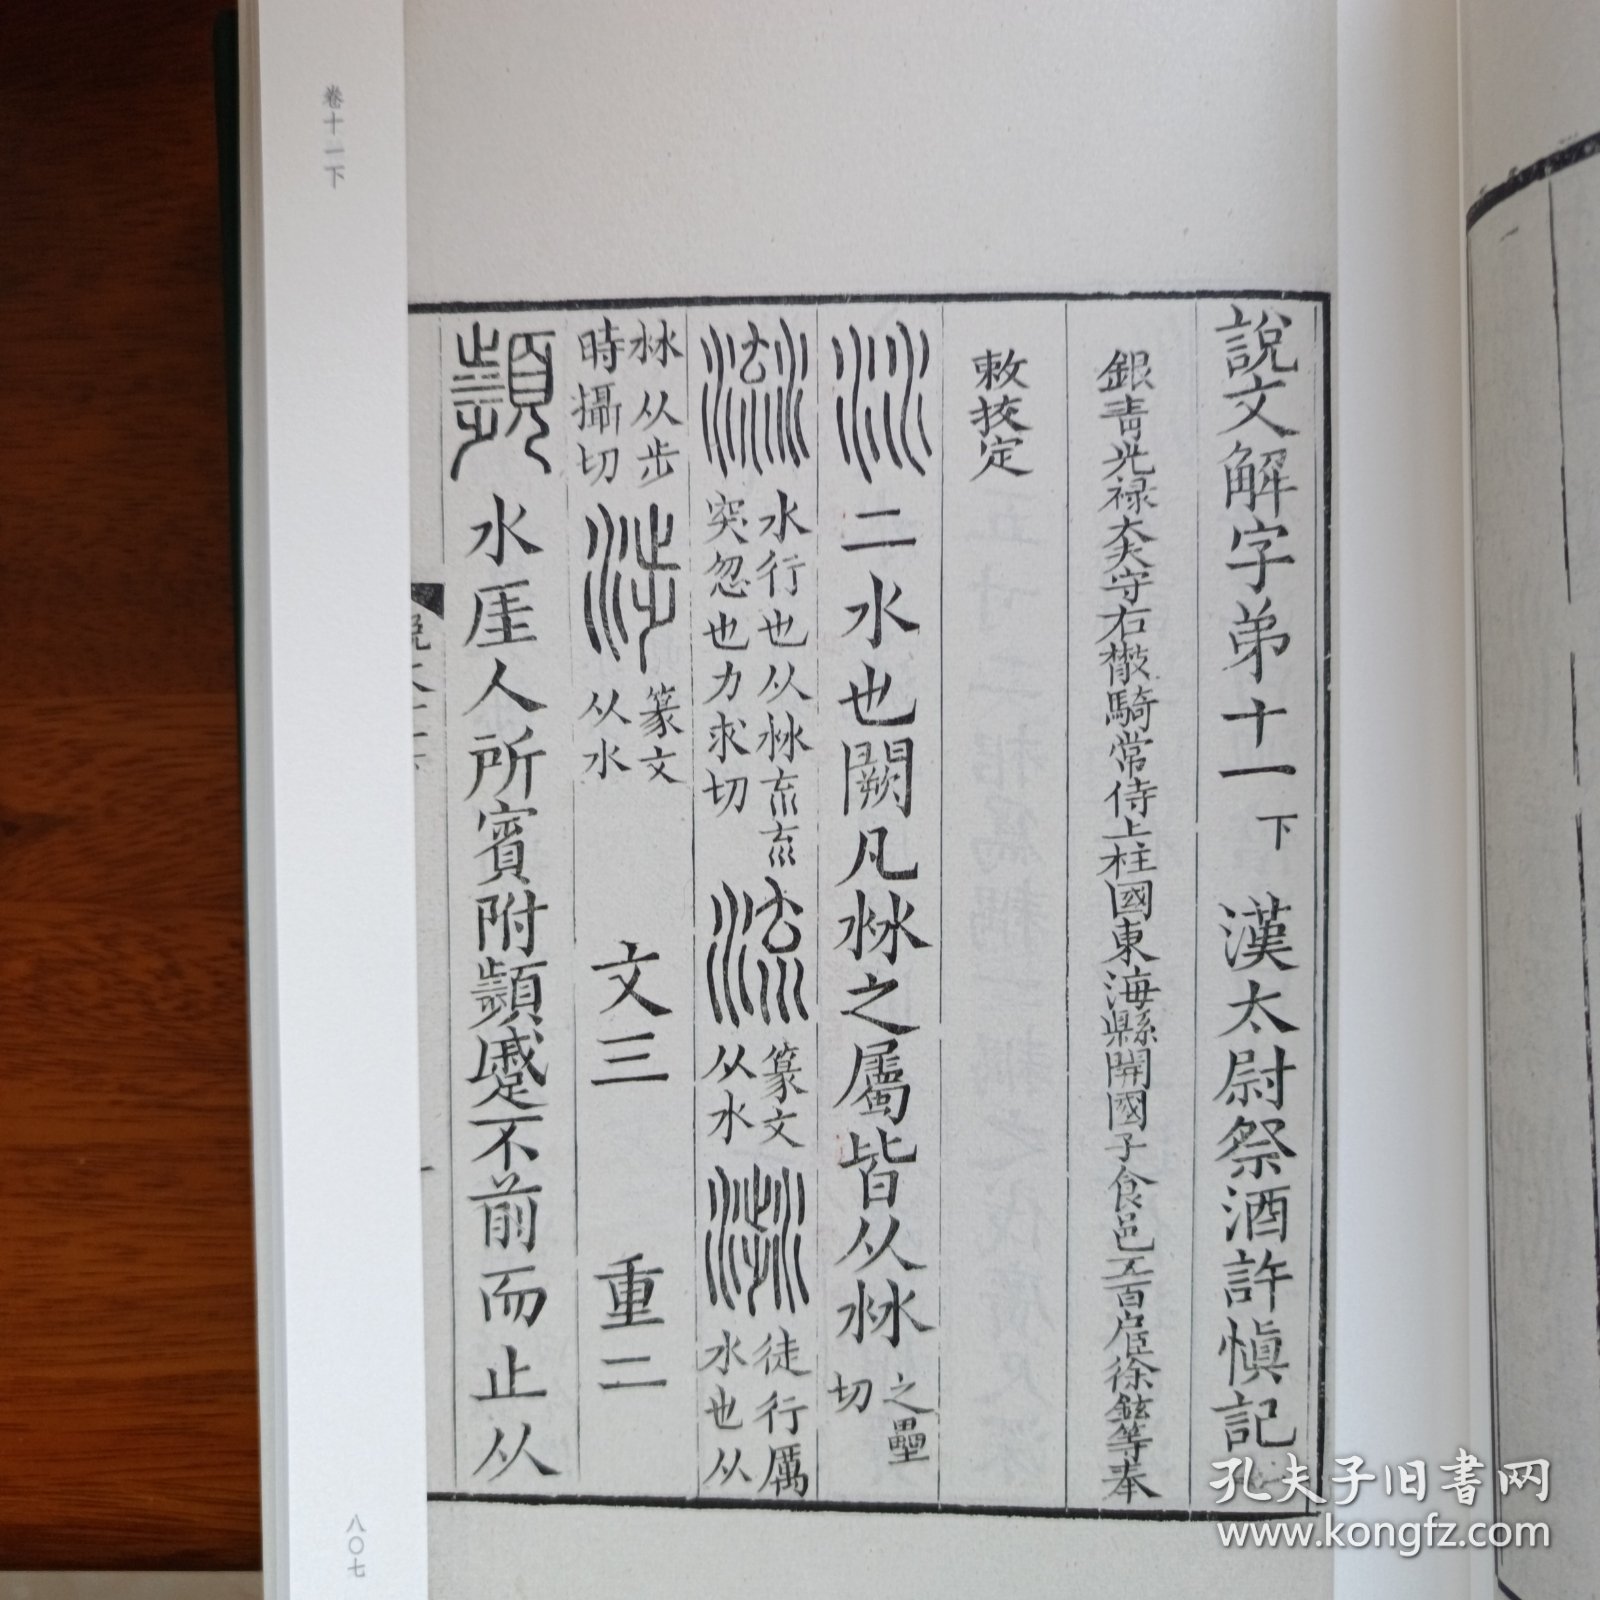 卷十一下
說文解字弟十一下 漢太尉祭酒許愼記
銀青光禄大夫守右散騎常侍上柱國東海縣開國子食邑五百户臣徐鉉等奉
敕挍定
沝 二水也闕凡沝之屬皆从沝 之壘切
𣹳 水行也从沝㐬㐬突忽也力求切 流 篆文从水 𣻣 徒行厲水也从
沝从步時攝切 涉 篆文从水 文三 重二
顰 水厓人所賓附頻蹙不前而止从
八〇七
孔夫子旧书网
www.kongfz.com